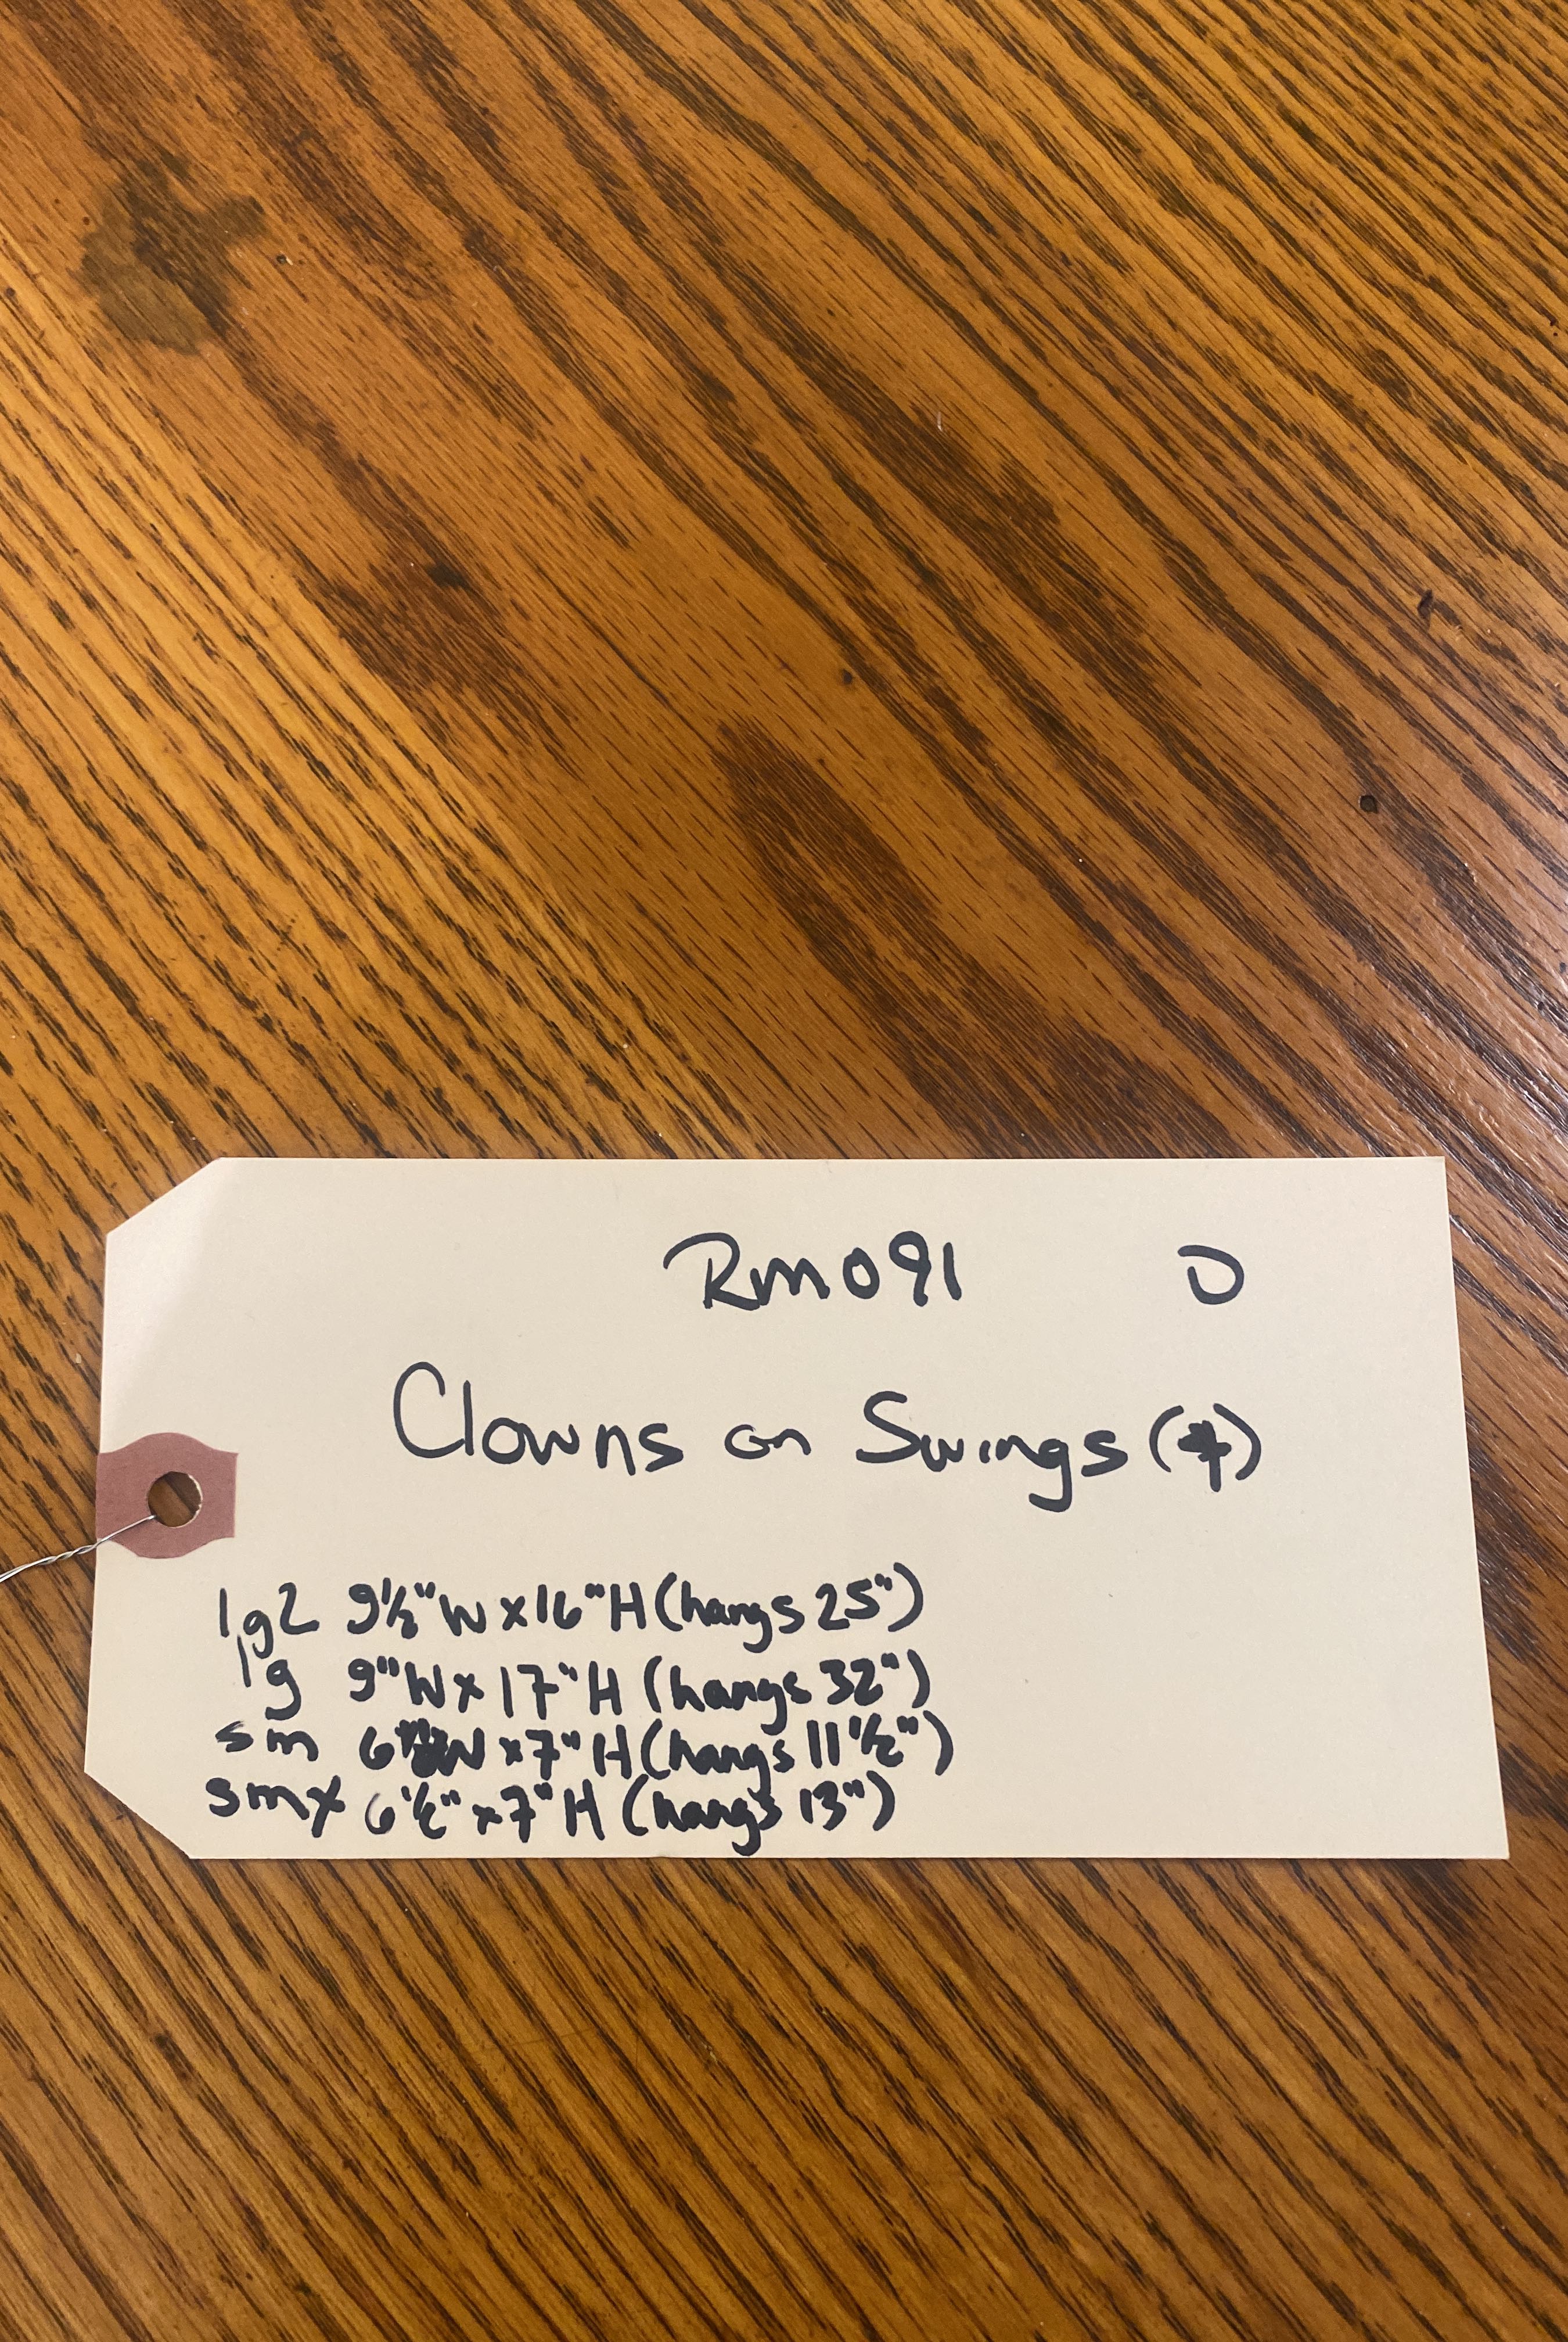 Rm091 D
Clowns on Swings (4)
lg2 9½"W x 16"H (hangs 25")
lg 9"W x 17"H (hangs 32")
sm 6 W x 7"H (hangs 11½")
smx 6½" x 7"H (hangs 13")